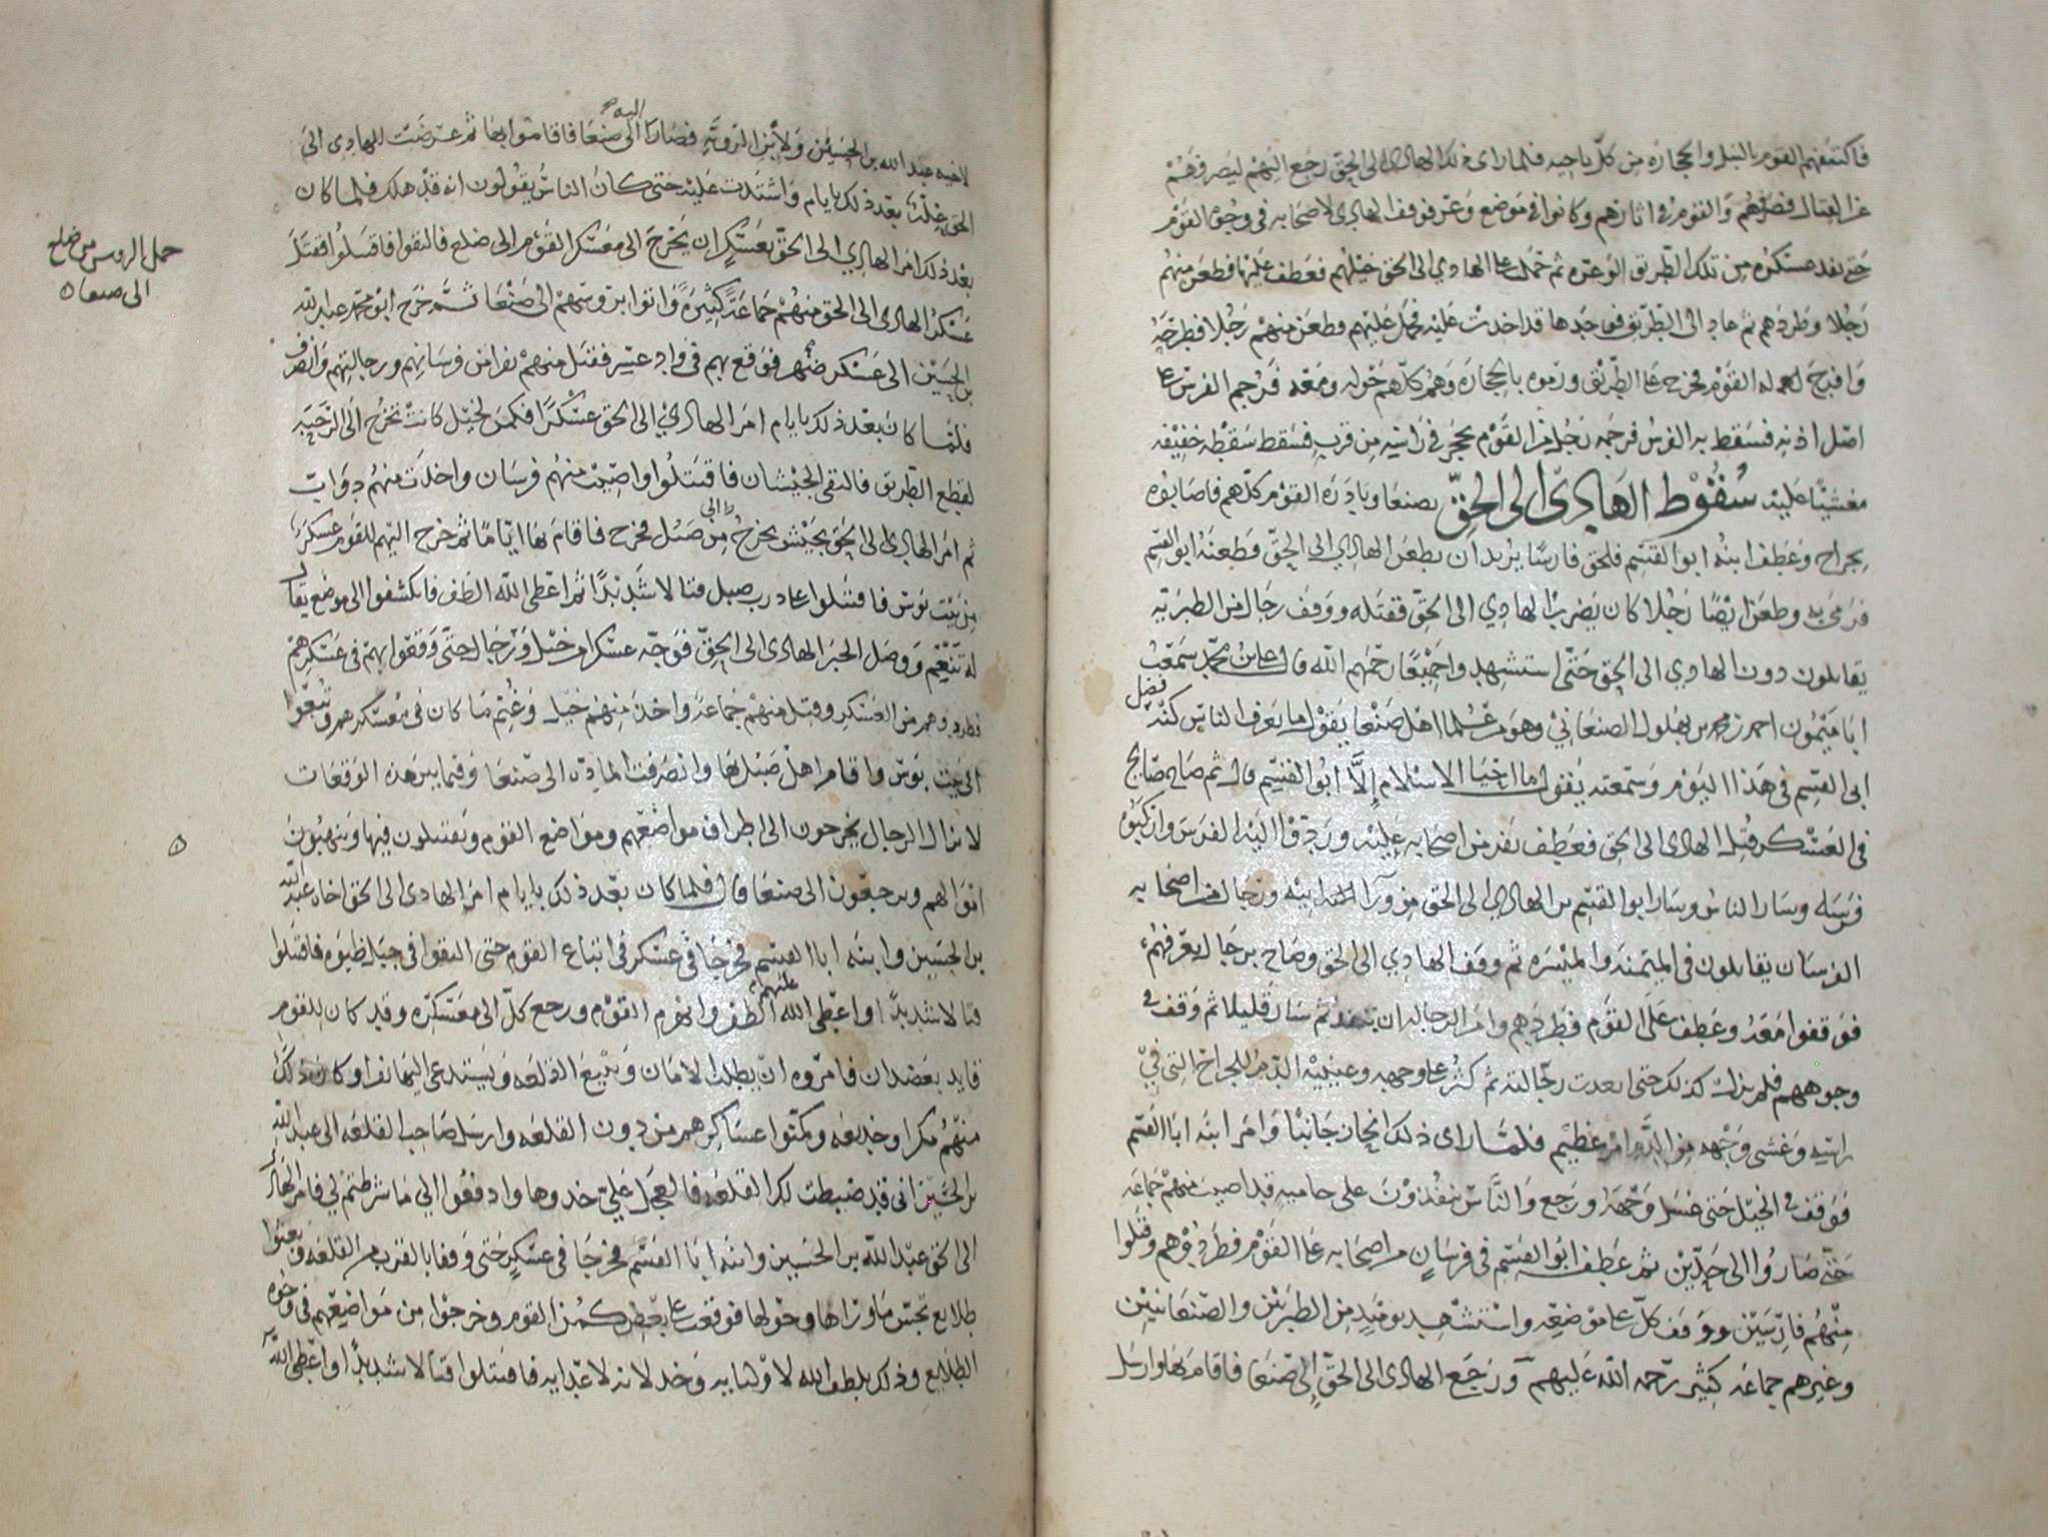 فاكتنفهم القوم بالنبل والحجاره من كل ناحيه فلما راى ذلك الهادى الى الحق رجع اليهم ليصرفهم
عن القتال فصرفهم والقوم فى اثارهم وكانوا فى موضع وعر فوقف الهادى لاصحابه فى وجوه القوم
حتى نفد عسكره من تلك الطريق الوعره ثم حمل على الهادي الى الحق خيلهم فعطف عليها فطعن منهم
رجلا وطردهم ثم عاد الى الطريق فوجدها قد اخذت عليه فحمل عليهم وطعن منهم رجلا فطرحه
وافرج له القوم فخرج على الطريق ورموه بالحجاره وهم كلهم حوله ومعه فرجم الفرس على
اصل اذنه فسقط به الفرس فرجمه رجل من القوم بحجر فى راسه من قرب فسقط سقطه خفيفه
مغشيًا عليه سقوط الهادى الى الحق بصنعا وبادره القوم كلهم فاصابوه
بجراح وعطف ابنه ابو القسم فلحق فارسًا يريد ان يطعن الهادي الى الحق فطعنه ابو القسم
فرمى به وطعن ايضًا رجلا كان يضرب الهادي الى الحق فقتله ووقف رجال من الطبريه
يقاتلون دون الهادي الى الحق حتى استشهدوا جميعًا رحمهم الله قال على بن محمد سمعت
ابا ميمون احمد بن محمد بن بهلول الصنعاني وهو من علما اهل صنعا يقول ما يعرف الناس كنه فضل
ابى القسم فى هذا اليوم وسمعته يقول ما احيا الاسلام إلا ابو القسم قال ثم صاح صايح
فى العسكر قتل الهادى الى الحق فعطف نفر من اصحابه عليه وردوا اليه الفرس واركبوه
فرسه وسار الناس وسار ابو القسم بن الهادي الى الحق من ورا ابيه ورجال من اصحابه
الفرسان يقاتلون فى الميمنه والميسره ثم وقف الهادي الى الحق وصاح برجال يعرفهم
فوقفوا معه وعطف على القوم فطردهم وامر الرجاله ان تنفد ثم سار قليلا ثم وقف فى
وجوههم فلم يزل كذلك حتى ابعدت رجالته ثم كثر على وجهه وعينيه الدم للجراح التى فى
راسه وغشى وجهه من الدم امر عظيم فلما راى ذلك انحاز جانبًا وامر ابنه ابا القسم
فوقف فى الخيل حتى غسل وجهه ورجع والناس ينفذون على حاميه قد اصيب منهم جماعه
حتى صاروا الى حدين ثم عطف ابو القسم فى فرسان من اصحابه على القوم فطردوهم وقتلوا
منهم فارسين ووقف كل على موضعه واستشهد يوميد من الطبريين والصنعانيين
وغيرهم جماعه كثير رحمه الله عليهم ورجع الهادى الى الحق الى صنعا فاقام بها وارسل
لاخيه عبد الله بن الحسين ولابن الرويه فصارا اليه الى صنعا فاقاموا بها ثم عرضت للهادى الى
الحق علة بعد ذلك بايام واشتدت عليه حتى كان الناس يقولون انه قد هلك فلما كان
بعد ذلك امر الهادي الى الحق بعسكر ان يخرج الى معسكر القوم الى ضلع فالتقوا فاقتتلوا فقتل
عسكر الهادى الى الحق منهم جماعة كثيرة واتوا بروسهم الى صنعا ثم خرج ابو محمد عبد الله
بن الحسين الى عسكر ضهر فوقع بهم فى واد عسر فقتل منهم نفرا من فرسانهم ورجالتهم وانصرف
فلما كان بعد ذلك بايام امر الهادي الى الحق عسكرًا فكمن لخيل كانت تخرج الى الرحبه
لقطع الطريق فالتقى الجيشان فاقتتلوا واصيب منهم فرسان واخذت منهم دواب
ثم امر الهادي الى الحق بجيش يخرج الى من صبل فخرج فاقام بها ايامًا ثم خرج اليهم للقوم عسكر
من بيت بوس فاقتتلوا على درب صبل قتالا شديدًا ثم اعطى الله الظفر فانكشفوا الى موضع يقال
له تنعم ووصل الخبر الهادى الى الحق فوجه عسكرا من خيل ورجال حتى وقفوا بهم فى عسكرهم
فطردوهم من العسكر وقتل منهم جماعة واخذ منهم خيل وغنم ما كان فى معسكرهم وتبعوا
الى بيت بوس واقام اهل صبل بها وانصرفت الماده الى صنعا وفيما بين هذه الوقعات
لا يزال الرجال يخرجون الى اطراف مواضعهم ومواضع القوم ويقتتلون فيها وينهبون
اموالهم ويرجعون الى صنعا قال فلما كان بعد ذلك بايام امر الهادى الى الحق اخاه عبد الله
بن الحسين وابنه ابا القسم فخرجا فى عسكر فى اتباع القوم حتى التقوا فى جبل ظبوه فاقتتلوا
قتالا شديدًا واعطى الله الظفر عليهم وانهزم القوم ورجع كل الى معسكره وقد كان للقوم
قايد بعضدان فامروه ان يطلب الامان ويبيع القلعه ويستدعى اليها نفرا وكان ذلك
منهم مكرا وخديعه ومكنوا عساكرهم من دون القلعه وارسل صاحب القلعه الى عبد الله
بن الحسين انى قد ضبطت لكم القلعه فالعجل علي خدوها وادفعوا الي ما شرطتم لي فامر الهادى
الى الحق عبد الله بن الحسين وابنه ابا القسم فخرجا فى عسكر حتى وقفا بالقرب من القلعه وبعثوا
طلايع تجس ما وراها وحولها فوقعت على بعض كمن القوم وخرجوا من مواضعهم فى وجوه
الطلايع وذلك بلطف الله لاوليايه وخذلانه لاعدايه فاقتتلوا قتالا شديدًا واعطى الله
حمل الروس من ضلع
الى صنعا ٥